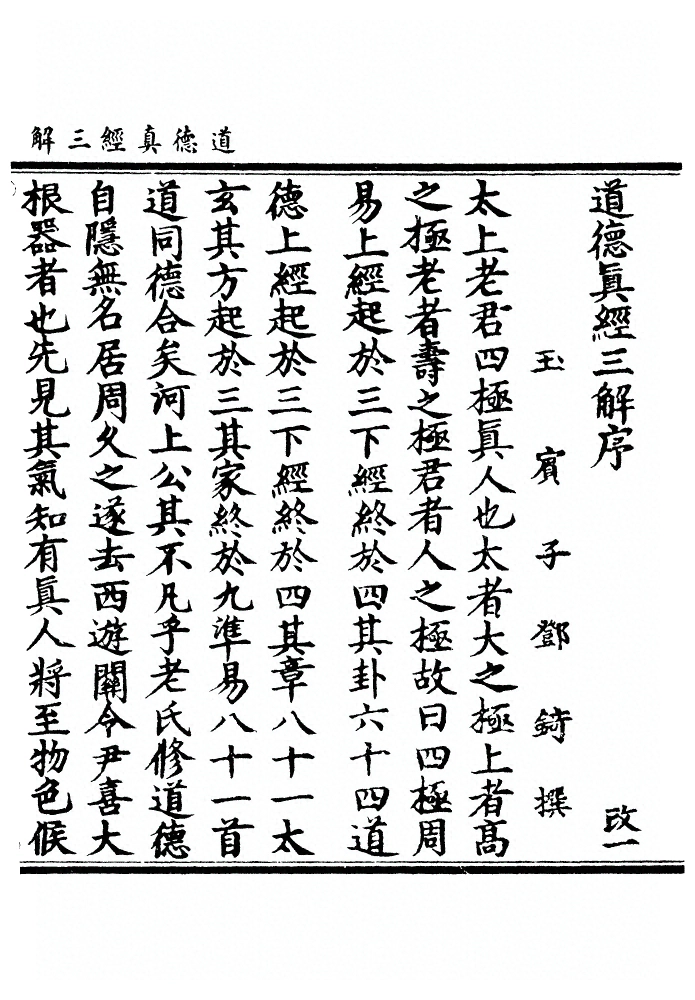 道德真經三解
道德眞經三解序 改一
玉賓子鄧錡撰
太上老君四極眞人也太者大之極上者高
之極老者壽之極君者人之極故曰四極周
易上經起於三下經終於四其卦六十四道
德上經起於三下經終於四其章八十一太
玄其方起於三其家終於九準易八十一首
道同德合矣河上公其不凡乎老氏修道德
自隱無名居周久之遂去西遊關令尹喜大
根器者也先見其氣知有眞人將至物色候